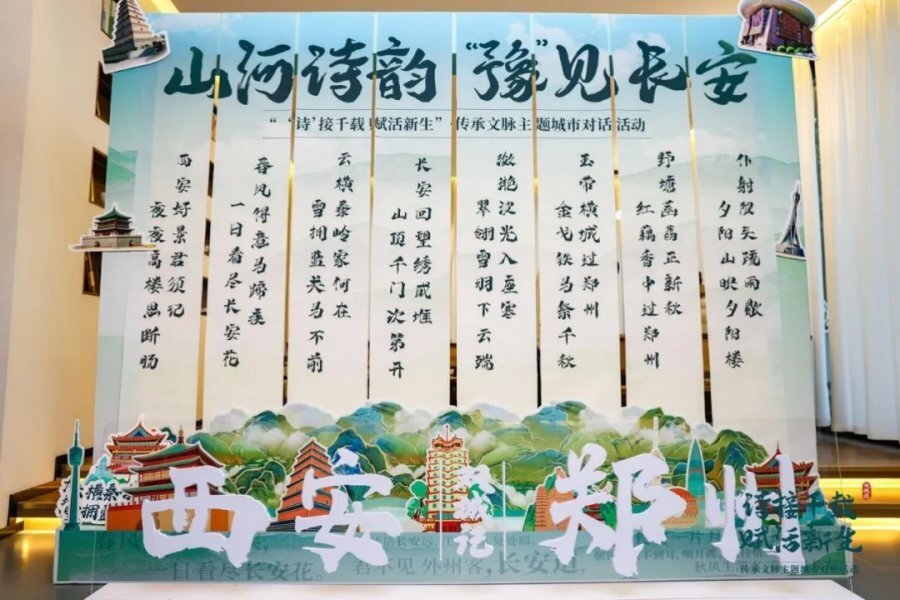 山河诗韵 “豫”见长安
“‘诗’接千载 赋活新生” 传承文脉主题城市对话活动
仆射陂头疏雨歇
夕阳山映夕阳楼
野塘菡萏正新秋
红藕香中过郑州
玉带横城过郑州
金戈铁马祭千秋
潋滟汉光入座寒
翠翎雪羽下云端
长安回望绣成堆
山顶千门次第开
云横秦岭家何在
雪拥蓝关马不前
春风得意马蹄疾
一日看尽长安花
西安好景君须记
夜夜高楼思断肠
西安 双城记 郑州
诗接千载
赋活新生
传承文脉主题城市对话活动
一日看尽长安花。
君不见外州客，长安道，